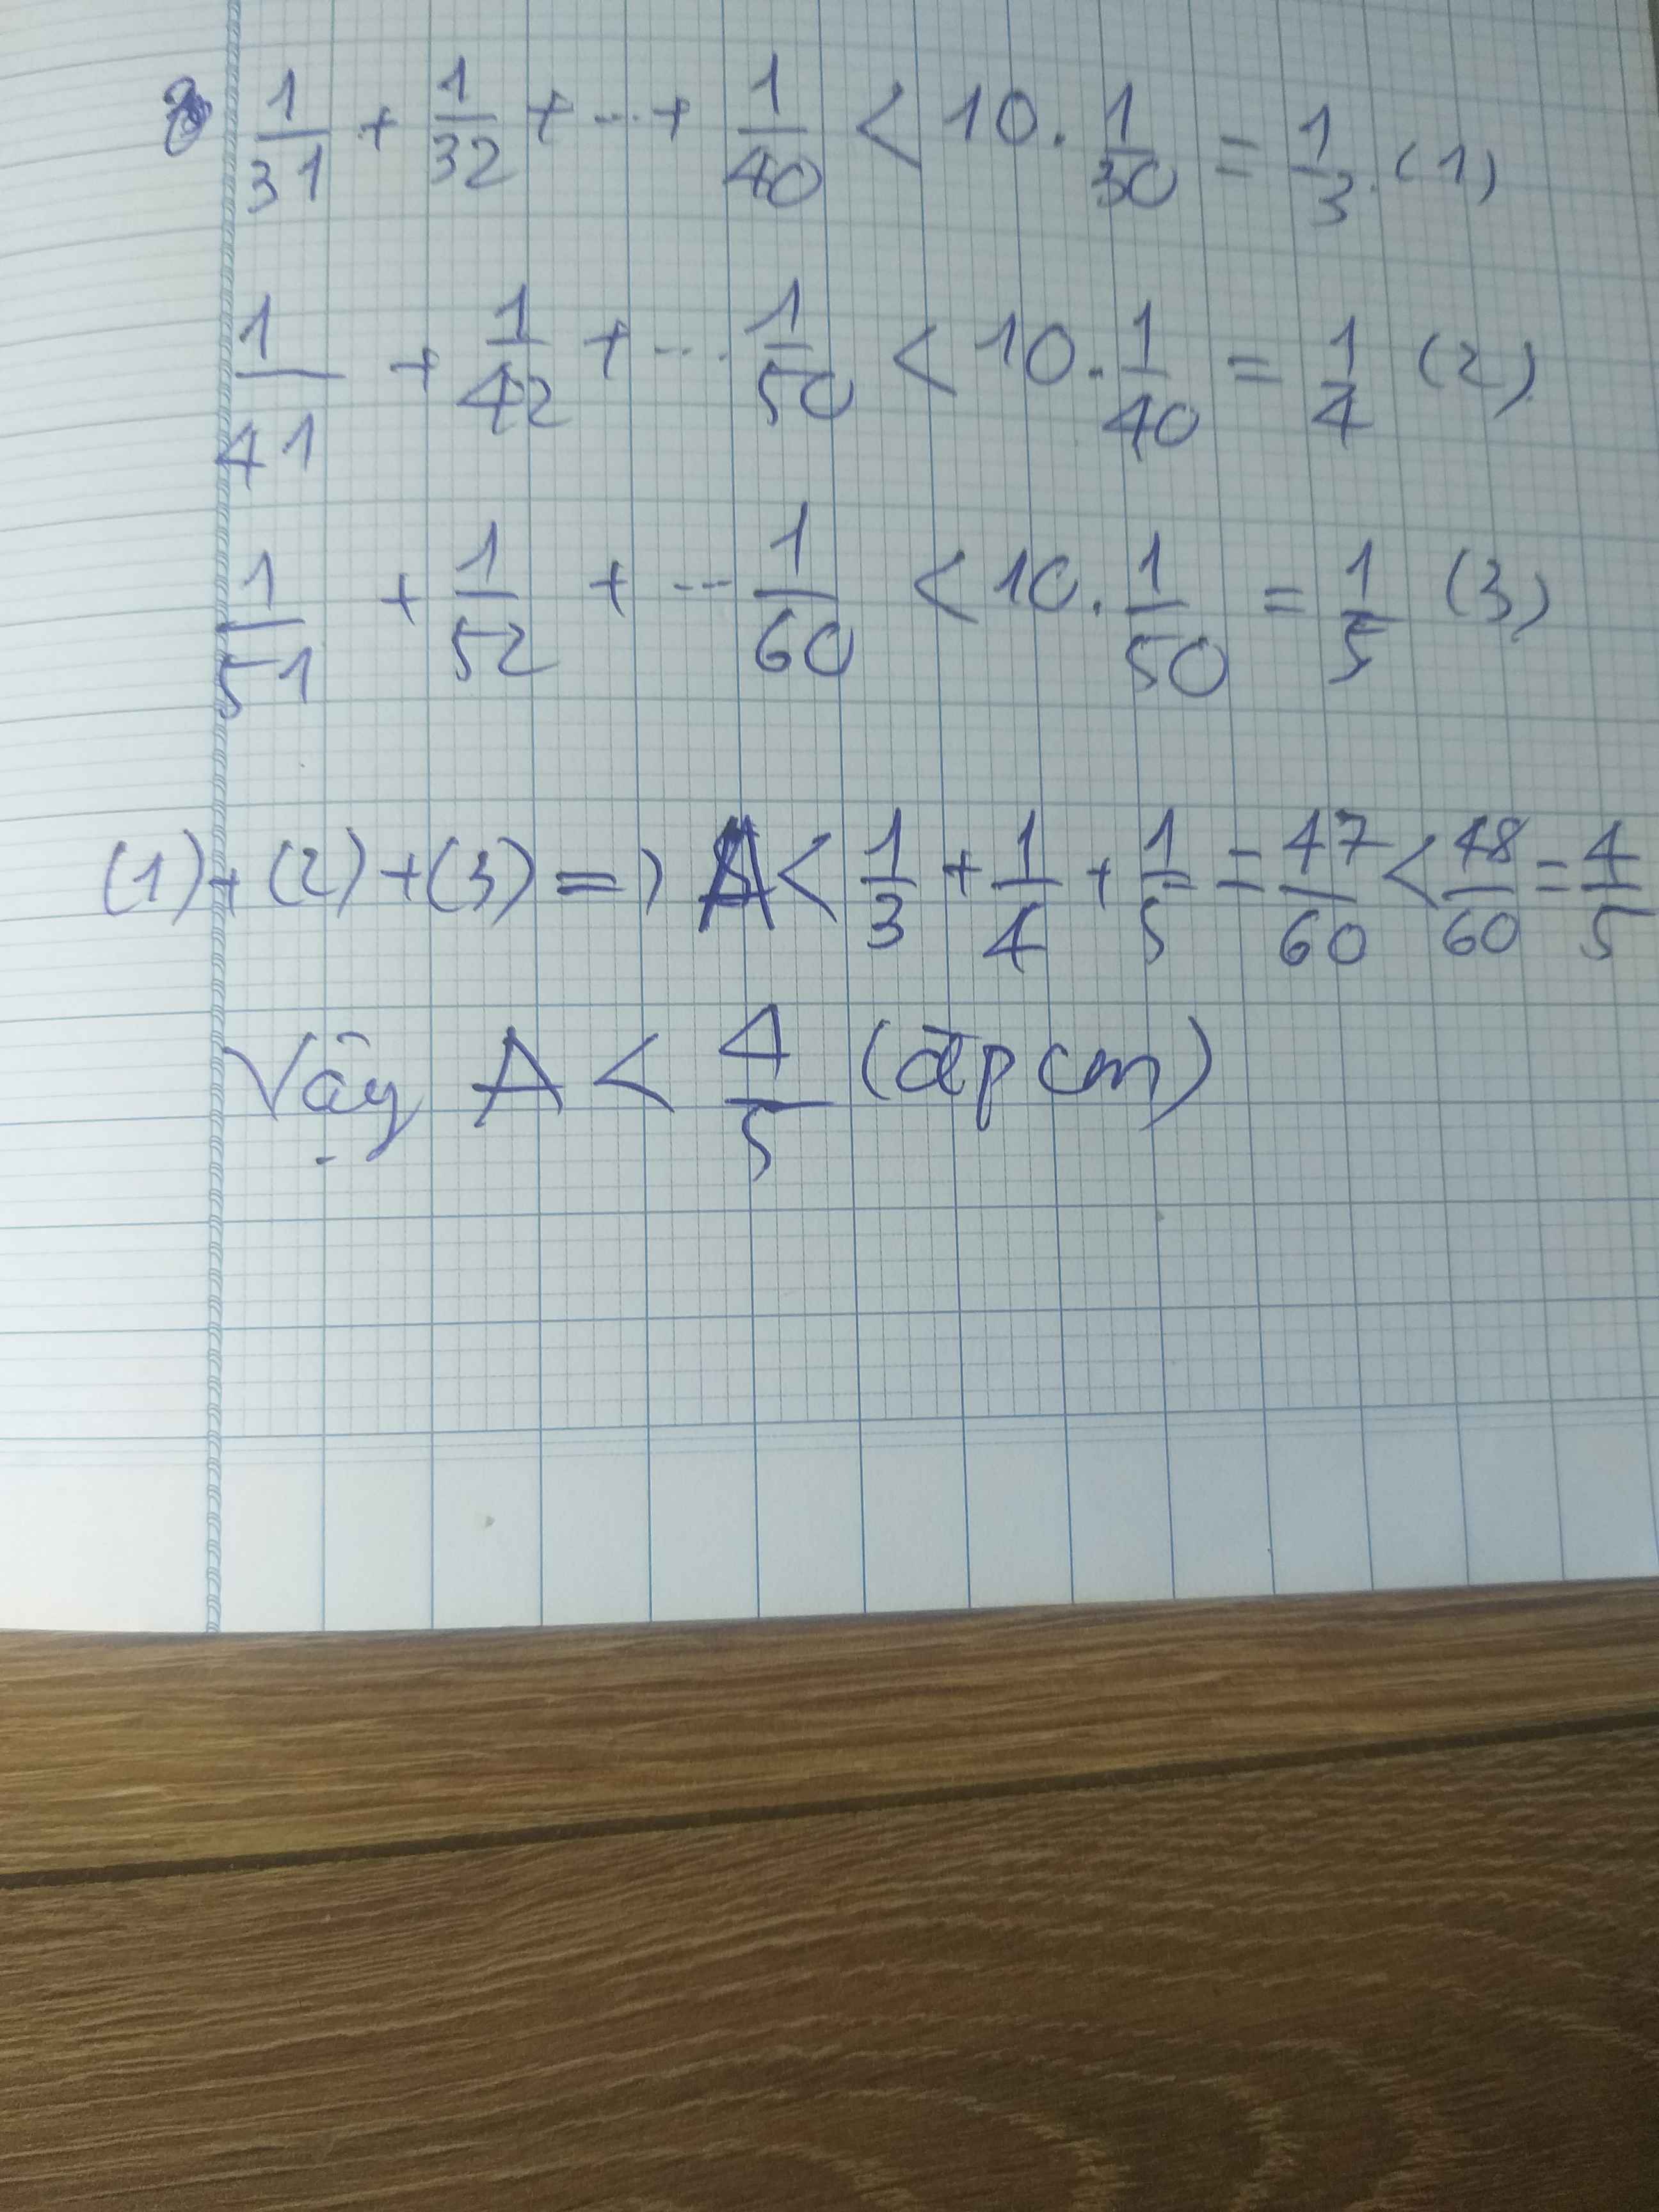 1/31 + 1/32 + ... + 1/40 < 10 . 1/30 = 1/3 . (1)
1/41 + 1/42 + ... 1/50 < 10 . 1/40 = 1/4 (2)
1/51 + 1/52 + ... 1/60 < 10 . 1/50 = 1/5 (3)
(1) + (2) + (3) => A < 1/3 + 1/4 + 1/5 = 47/60 < 48/60 = 4/5
Vậy A < 4/5 (đpcm)